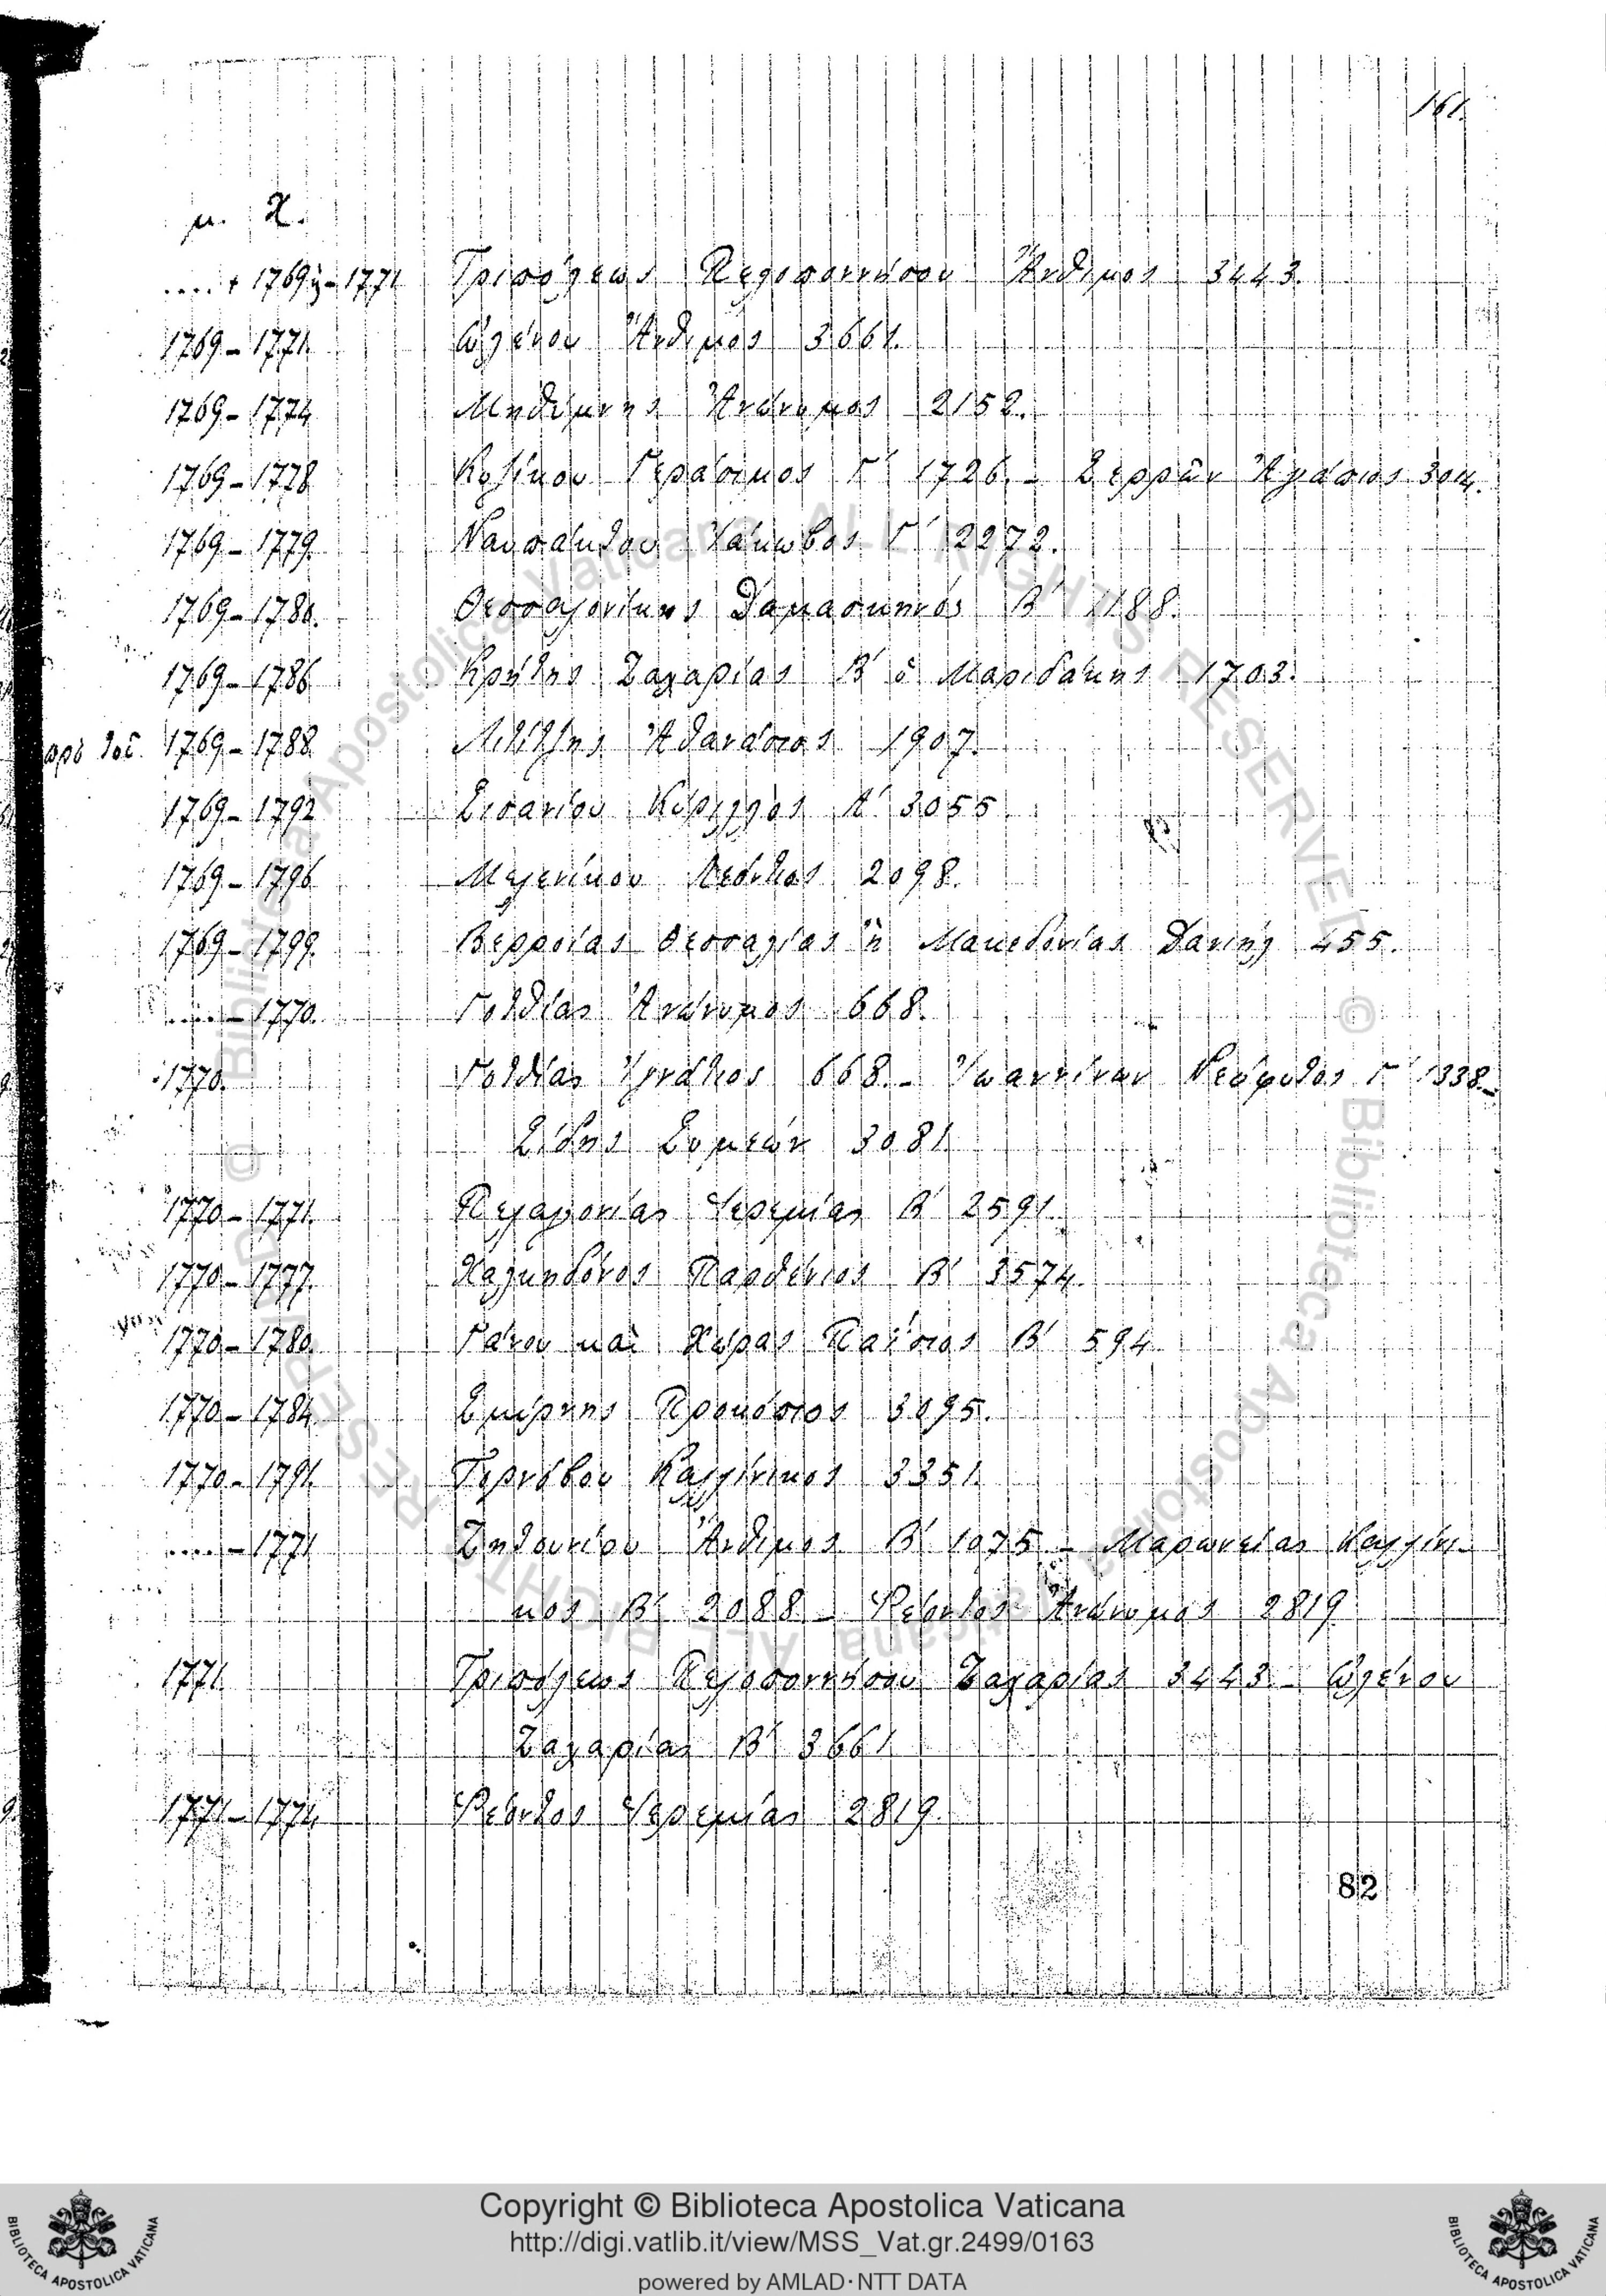 161.
μ. Χ.
....+ 1769 ἢ - 1771 Τριπόλεως Πελοποννήσου Ἄνθιμος 3443.
1769 - 1771. Ὠλένου Ἄνθιμος 3661.
1769 - 1774 Μηθύμνης Ἀνώνυμος 2152.
1769 - 1778 Κυζίκου Γεράσιμος Γ΄ 1726. - Σερρῶν 3014.
1769 - 1779. Ναυπάκτου Ἰάκωβος Γ΄ 2272.
1769 - 1780. Θεσσαλονίκης Δαμασκηνός Β΄ 1188.
1769 - 1786 Κρήτης Ζαχαρίας Β΄ ὁ Μαριδάκης 1703.
πρὸ τοῦ 1769 - 1788 Λιτίτζης Ἀθανάσιος 1907.
1769 - 1792 Σισανίου Κύριλλος Α΄ 3055
1769 - 1796 Μελενίκου Λεόντιος 2098.
1769 - 1799. Βερροίας Θεσσαλίας ἢ Μακεδονίας Δανιὴλ 455.
..... - 1770. Γοτθίας Ἀνώνυμος 668.
1770. Γοτθίας Ἰγνάτιος 668. - Ἰωαννίνων Νεόφυτος Γ΄ 1338. -
Σίδης Συμεών 3081
1770 - 1771. Πελαγονίας Ἱερεμίας Β΄ 2591.
1770 - 1777. Χαλκηδόνος Παρθένιος Β΄ 3574.
1770 - 1780. Γάνου καὶ Χώρας Παΐσιος Β΄ 594
1770 - 1784. Σμύρνης Προκόπιος 3095.
1770 - 1791. Τερνόβου Καλλίνικος 3351.
..... - 1771 Ζητουνίου Ἄνθιμος Β΄ 1075 - Μαρωνείας Καλλίνι-
κος Β΄ 2088 - Ῥέοντος Ἀνώνυμος 2819
1771. Τριπόλεως Πελοποννήσου Ζαχαρίας 3443 - Ὠλένου
Ζαχαρίας Β΄ 3661
1771 - 1774 Ῥέοντος Ἱερεμίας 2819.
82
Copyright © Biblioteca Apostolica Vaticana
http://digi.vatlib.it/view/MSS_Vat.gr.2499/0163
powered by AMLAD·NTT DATA